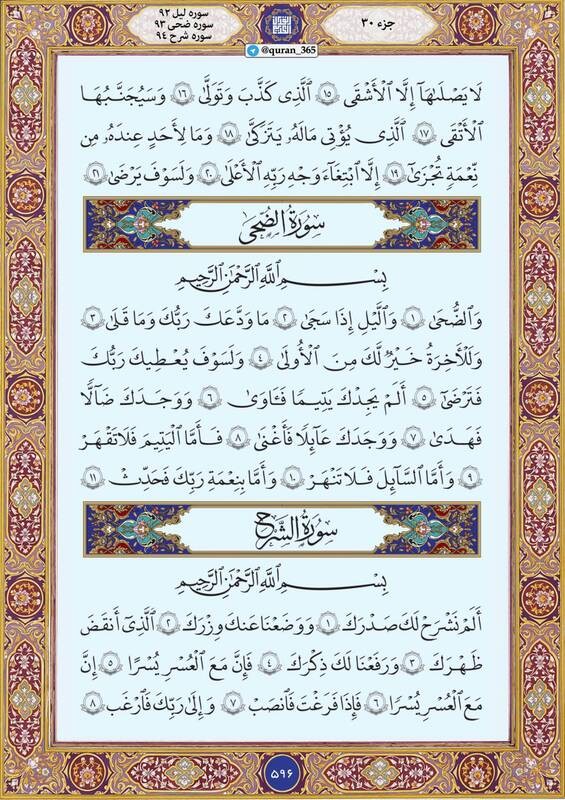 جزء ۳۰
سوره لیل ۹۲
سوره ضحی ۹۳
سوره شرح ۹۴
@quran_365
لَا يَصْلَىٰهَآ إِلَّا ٱلْأَشْقَى ۱۵ ٱلَّذِى كَذَّبَ وَتَوَلَّىٰ ۱۶ وَسَيُجَنَّبُهَا
ٱلْأَتْقَى ۱۷ ٱلَّذِى يُؤْتِى مَالَهُۥ يَتَزَكَّىٰ ۱۸ وَمَا لِأَحَدٍ عِندَهُۥ مِن
نِّعْمَةٍ تُجْزَىٰٓ ۱۹ إِلَّا ٱبْتِغَآءَ وَجْهِ رَبِّهِ ٱلْأَعْلَىٰ ۲۰ وَلَسَوْفَ يَرْضَىٰ ۲۱
سُورَةُ الضُّحَى
بِسْمِ ٱللَّهِ ٱلرَّحْمَٰنِ ٱلرَّحِيمِ
وَٱلضُّحَىٰ ۱ وَٱلَّيْلِ إِذَا سَجَىٰ ۲ مَا وَدَّعَكَ رَبُّكَ وَمَا قَلَىٰ ۳
وَلَلْأَخِرَةُ خَيْرٌ لَّكَ مِنَ ٱلْأُولَىٰ ۴ وَلَسَوْفَ يُعْطِيكَ رَبُّكَ
فَتَرْضَىٰٓ ۵ أَلَمْ يَجِدْكَ يَتِيمًا فَـَٔاوَىٰ ۶ وَوَجَدَكَ ضَآلًّا
فَهَدَىٰ ۷ وَوَجَدَكَ عَآئِلًا فَأَغْنَىٰ ۸ فَأَمَّا ٱلْيَتِيمَ فَلَا تَقْهَرْ
۹ وَأَمَّا ٱلسَّآئِلَ فَلَا تَنْهَرْ ۱۰ وَأَمَّا بِنِعْمَةِ رَبِّكَ فَحَدِّثْ ۱۱
سُورَةُ الشَّرْحِ
بِسْمِ ٱللَّهِ ٱلرَّحْمَٰنِ ٱلرَّحِيمِ
أَلَمْ نَشْرَحْ لَكَ صَدْرَكَ ۱ وَوَضَعْنَا عَنكَ وِزْرَكَ ۲ ٱلَّذِىٓ أَنقَضَ
ظَهْرَكَ ۳ وَرَفَعْنَا لَكَ ذِكْرَكَ ۴ فَإِنَّ مَعَ ٱلْعُسْرِ يُسْرًا ۵ إِنَّ
مَعَ ٱلْعُسْرِ يُسْرًا ۶ فَإِذَا فَرَغْتَ فَٱنصَبْ ۷ وَإِلَىٰ رَبِّكَ فَٱرْغَب ۸
۵۹۶